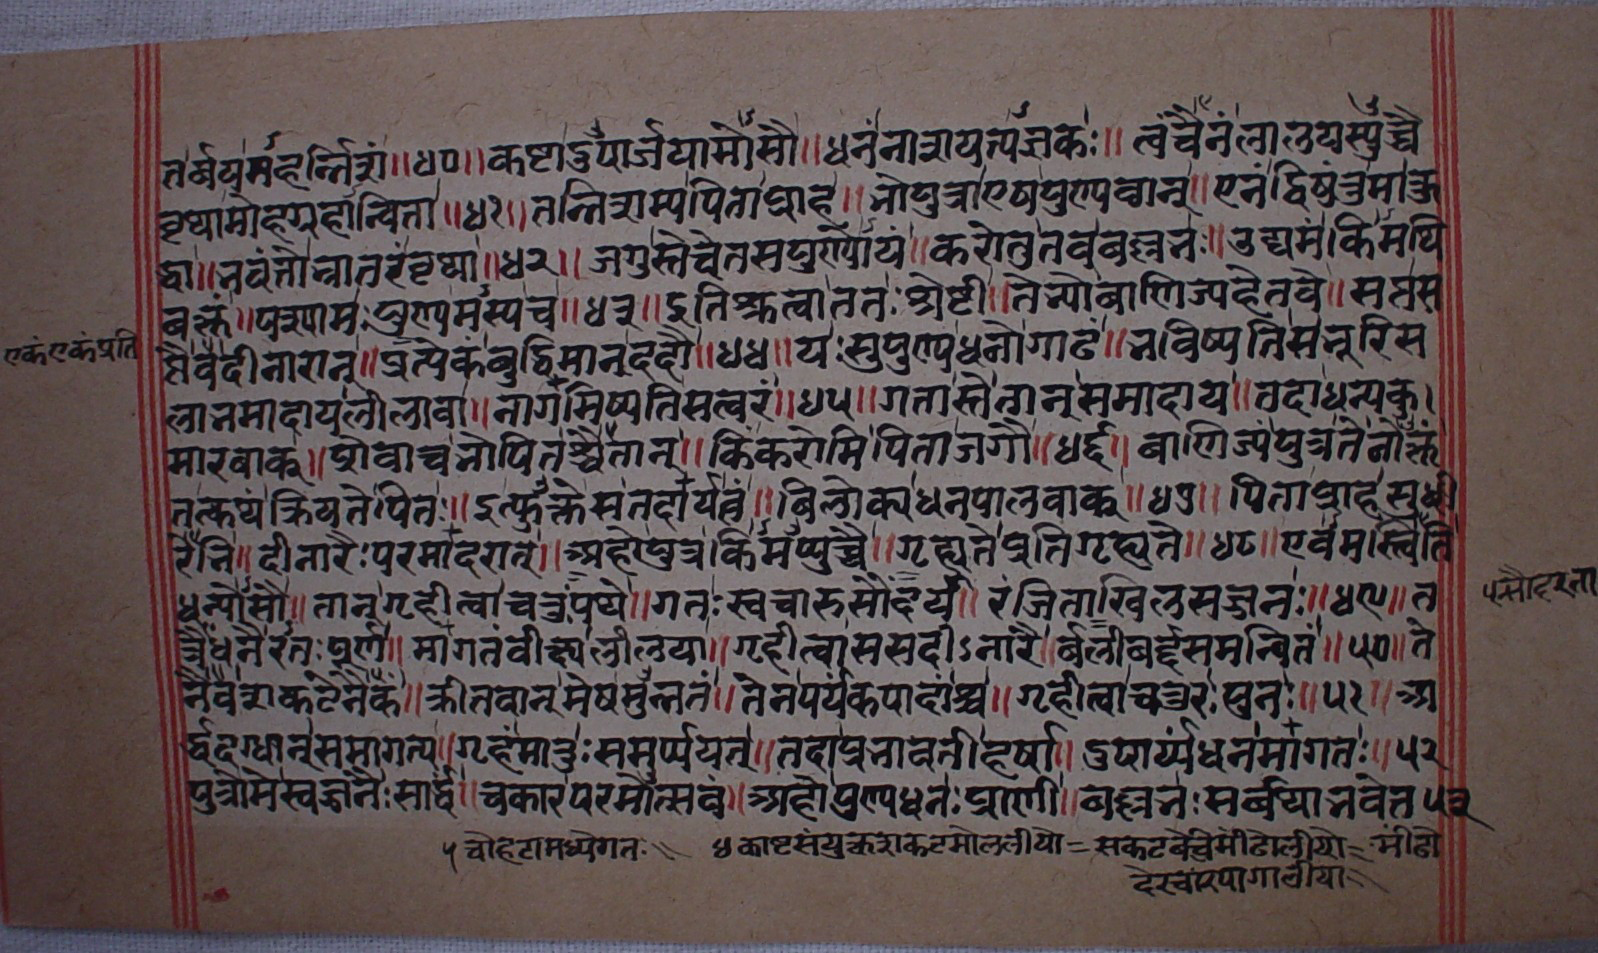 तर्बयमहर्न्निशं॥४०॥कष्टाडुपार्जयामोसौ॥धनंनाशयत्यजकः॥त्वंचैनंलालयस्युच्चै
वृथामोहग्रहान्विता॥४१॥तन्निशम्यपिताप्राह॥भोपुत्राएषपुण्यवान्॥एनंद्विषंतुमाक्रु
द्धा॥नवंतोभ्रातरंवृथा॥४२॥जगुस्तेचेतसपुण्योयं॥करोतुतववल्लभः॥उद्यमंकिमपि
व्यक्तं॥पश्यामःपुण्यमस्यच॥४३॥इतिश्रुत्वाततःश्रेष्टी॥तेभ्योवाणिज्यहेतवे॥सतस
एकंएकंप्रति
प्तैवदीनारान्॥प्रत्येकंबुद्धिमान्ददौ॥४४॥यःसुपुण्यधनोगाढं॥भविष्यतिसभूरिस
लाभमादायलीलावा॥नागमिष्यतिसत्वरं॥४५॥गतास्तेतान्समादाय॥तदाधन्यकु।
मारवाक्॥प्रोवाचभोपितश्चैतान्॥किंकरोमिपिताजगौ॥४६॥वाणिज्यंपुत्रतेनोक्तं
तत्कथंक्रियतेपितः॥इत्युक्तेसतदार्यत्वं॥विलोक्यधनपालवाक्॥४७॥पिताप्राहसुधी
रेभि॥दीनारैःपरमादरात्॥अहोपुत्रकिमप्युच्चै॥गृह्यतेप्रतिगृह्यते॥४८॥एवमस्त्विति
धन्योसौ॥तान्गृहीत्वाचत्रंपथे॥गतःस्वचारुसौंदर्य॥रंजिताखिलसज्जनः॥४९॥त
त्रैंधनैर्रतःपूर्णं॥मागतंवीक्ष्यलीलया॥गृहीत्वाससदीऽनारै॥र्बलीबर्द्दसमन्वितं॥५०॥ते
नैवशकटेनैकं॥क्रीतवान्मेषमुन्नतं॥तेनपर्यंकपादांश्च॥गृहीत्वाचतुरःपुनः॥५१॥अ
र्द्धदग्धान्समागत्य॥गृहंमातुःसमर्प्पयत्॥तदाप्रभावतीहर्षा॥डुपार्य्यधनमागतः॥५२
पुत्रोमेस्वजनैःसार्द्धं॥चकारपरमोत्सवं॥अहोपुण्यधनःप्राणी॥वल्लभःसर्वथाभवेत५३
५चौहटामध्यैगतः॥४काष्टसंयुक्तशकटमोललीया=सकटवेचिमींढोलीयो=मींढो
देरचारपागालीया॥